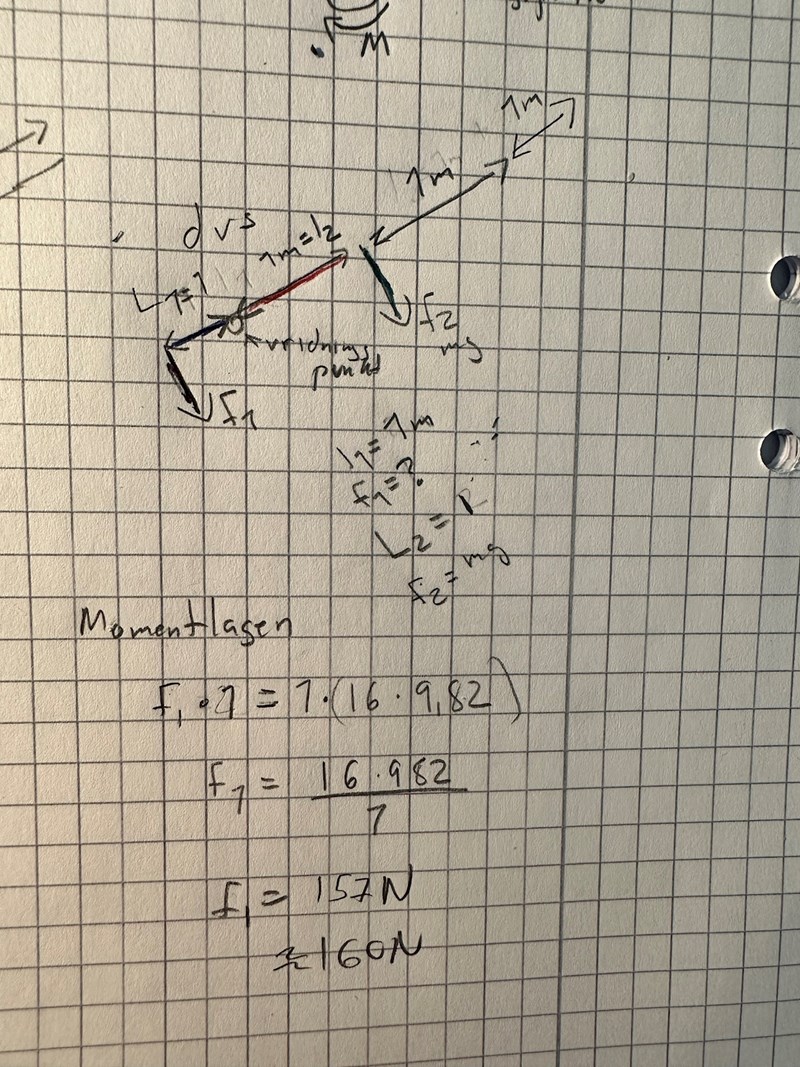 M
1m
1m
dvs
1m=l2
L1=1
f2
mg
vridnings
punkt
f1
l1= 1m
f1=?
L2=
f2=mg
Momentlagen
f1·1 = 1·(16·9,82)
f1 = 16·982
1
f1 = 157N
≈160N